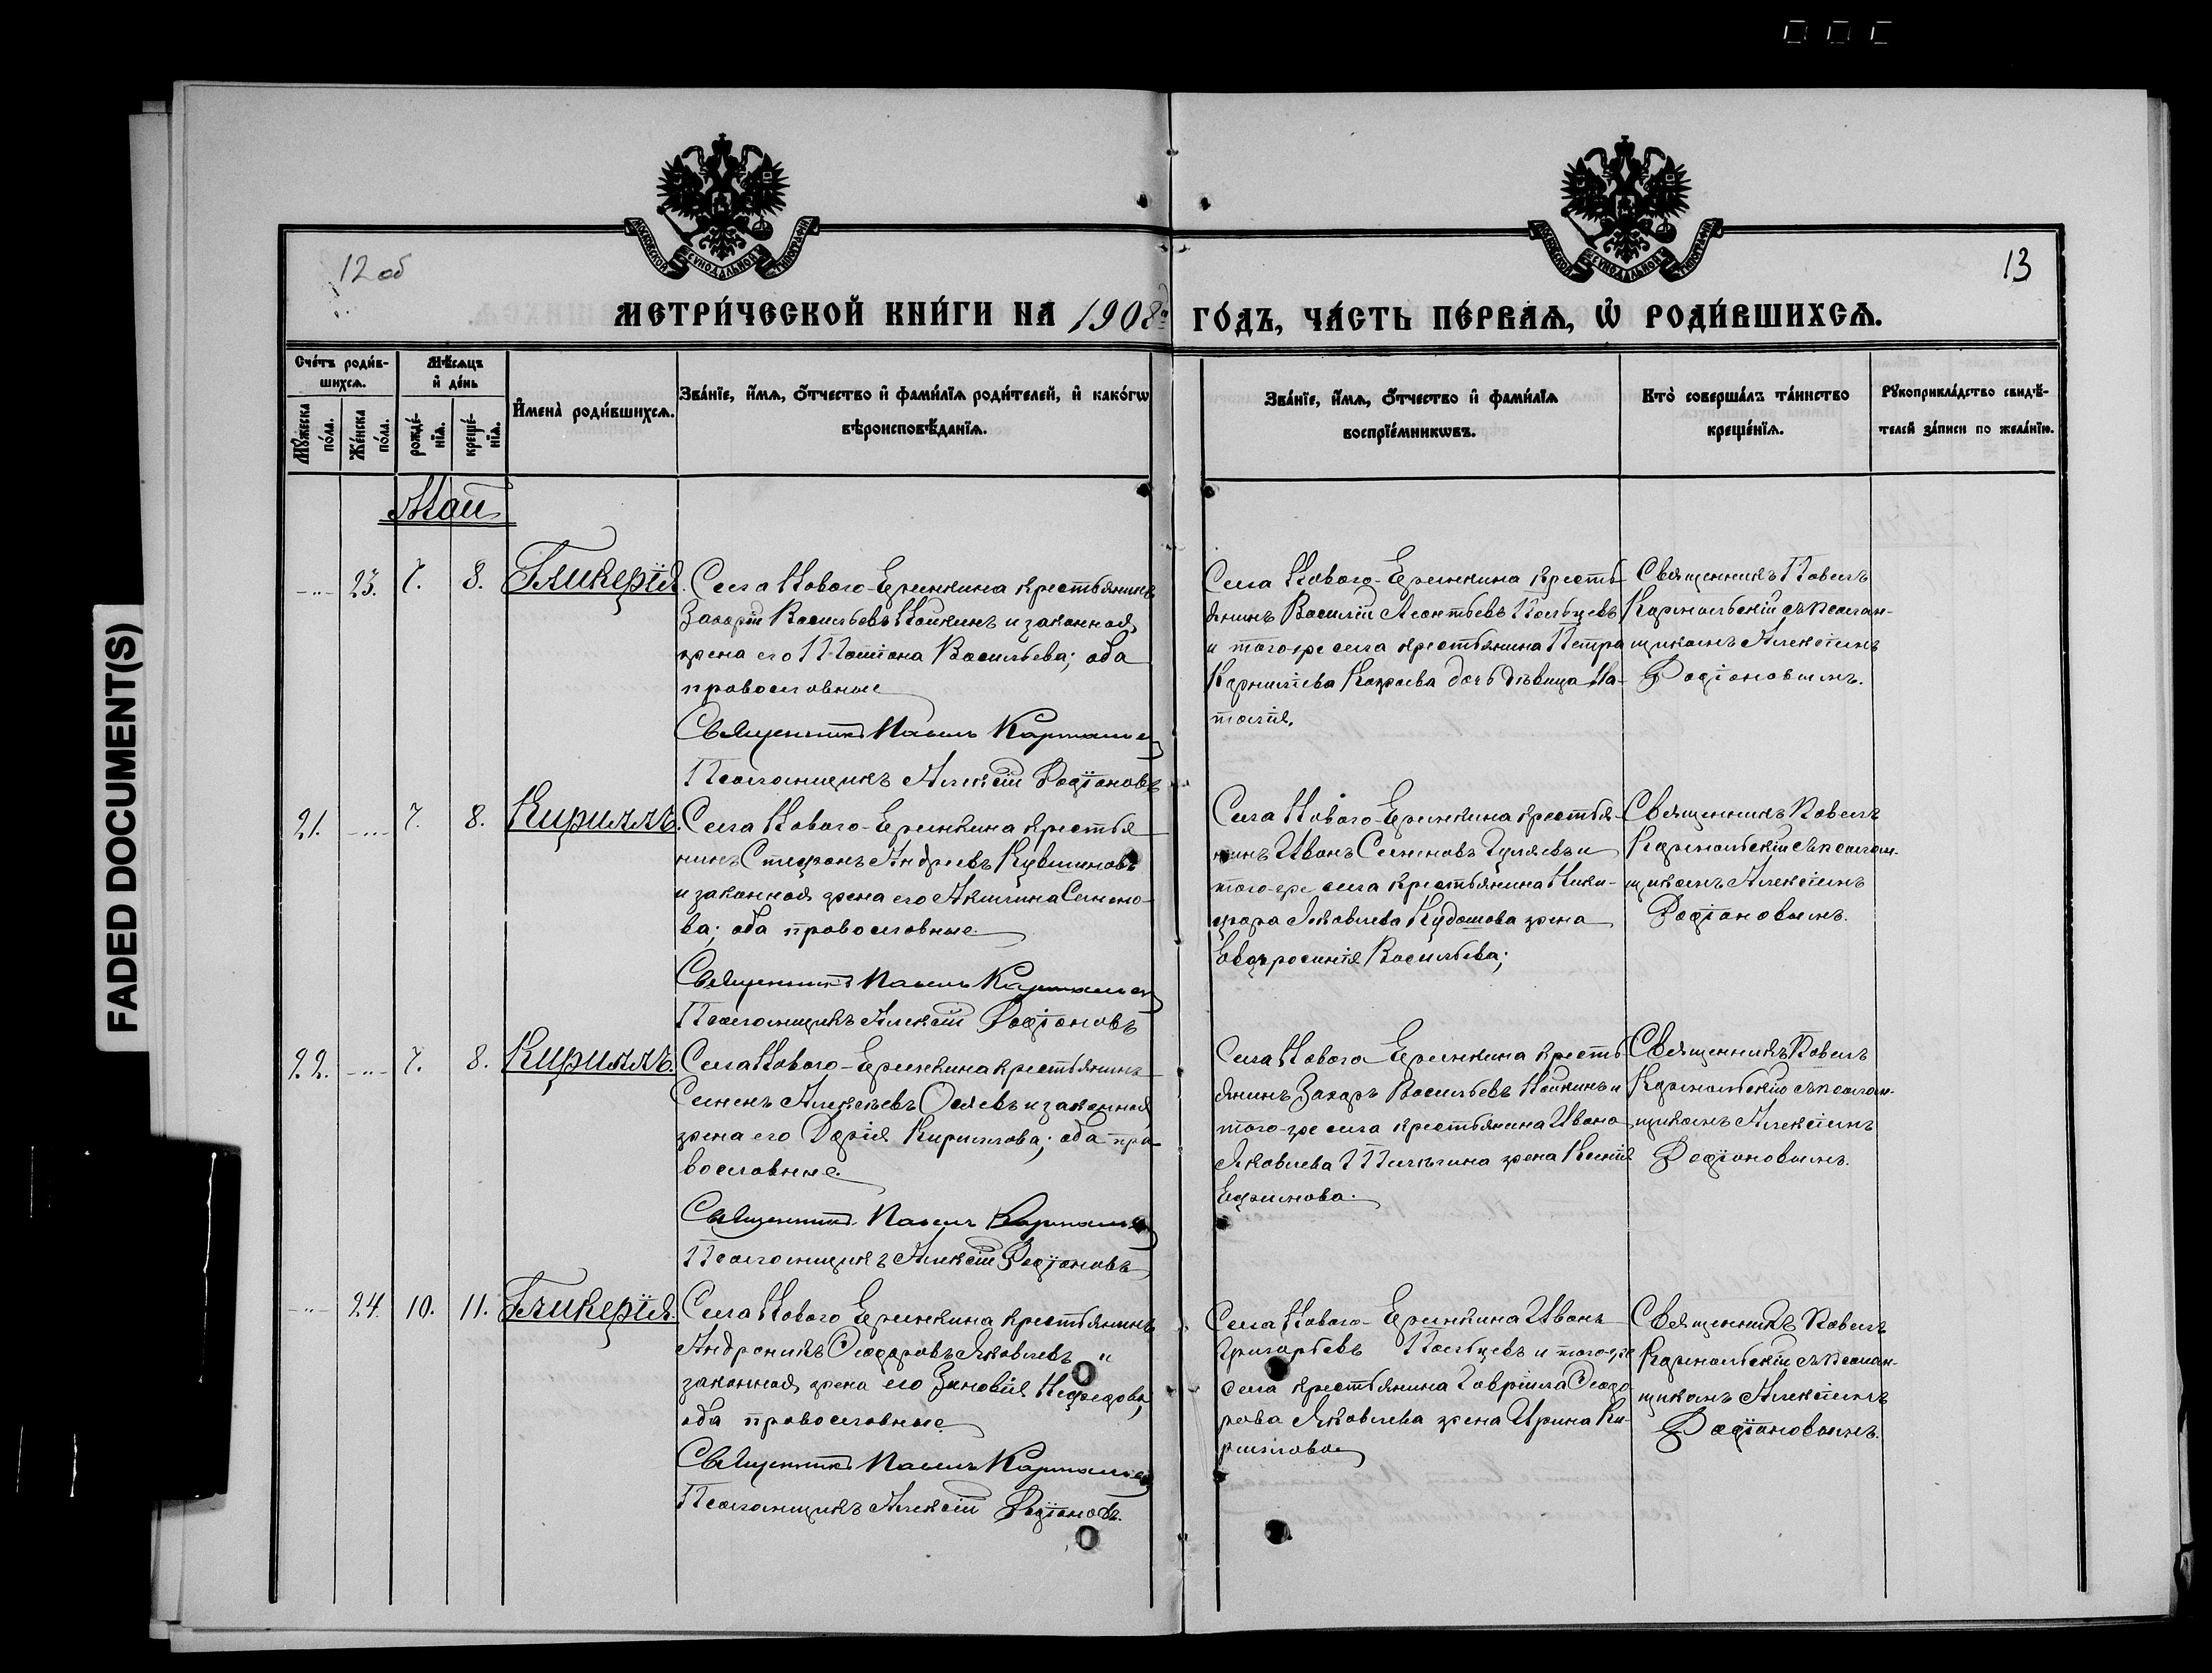 FADED DOCUMENT(S)
12 об
13
МОСКОВСКОЙ СѴНОДАЛЬНОЙ ТИПОГРАФІИ
МОСКОВСКОЙ СѴНОДАЛЬНОЙ ТИПОГРАФІИ
МЕТРИ́ЧЕСКОЙ КНИ́ГИ НА 1908й ГО́ДЪ, ЧА́СТЬ ПЕ́РВАѦ, Ѡ҆ РОДИ́ВШИХСѦ.
Сче́тъ роди́в-
шихсѧ.
Мѣ́сѧцъ
и҆ де́нь
Мꙋ́жеска
по́ла.
Же́нска
по́ла.
рожде́-
нїѧ.
креще́-
нїѧ.
И҆мена̀ роди́вшихсѧ.
Зва́нїе, и҆́мѧ, ѻ҆́тчество и҆ фами́лїѧ роди́телей, и҆ како́гѡ
вѣроисповѣ́данїѧ.
Зва́нїе, и҆́мѧ, ѻ҆́тчество и҆ фами́лїѧ
воспрїе́мникѡвъ.
Кто̀ соверша́лъ та́инство
креще́нїѧ.
Рꙋкоприкла́дство свидѣ́-
телей за́писи по жела́нїю.
Май
-"- 23. 7. 8. Гликерїя.
Села Нового-Еремкина крестьянинъ
Захарій Васильевъ Нойкинъ и законная
жена его Татіана Васильева; оба
православные
Священникъ Павелъ
Псаломщикъ Алексій Родіоновъ
Села Нового-Еремкина кресть-
янинъ Василій Леонтьевъ Польцевъ
и того-же села крестьянина Петра
Корниліева дочь дѣвица На-
талія.
Священникъ Павелъ
съ псалом-
щикомъ Алексіемъ
Родіоновымъ.
21. -"- 7. 8. Кириллъ.
Села Нового-Еремкина крестья-
нинъ Стефанъ Андреевъ Кувшиновъ
и законная жена его Акилина Семено-
ва; оба православные
Священникъ Павелъ
Псаломщикъ Алексій Родіоновъ
Села Нового-Еремкина крестья-
нинъ Иванъ Семеновъ Гуляевъ и
того-же села крестьянина Ники-
фора Яковлева Кудашова жена
Евфросинія Васильева;
Священникъ Павелъ
съ псалом-
щикомъ Алексіемъ
Родіоновымъ.
22. -"- 7. 8. Кириллъ.
Села Нового-Еремкина крестьянинъ
Семенъ Алексѣевъ и законная
жена его Дарія Кириллова; оба пра-
вославные
Священникъ Павелъ
Псаломщикъ Алексій Родіоновъ
Села Нового Еремкина кресть-
янинъ Захаръ Васильевъ Нойкинъ и
того-же села крестьянина Ивана
Яковлева жена Ксенія
Ефимова.
Священникъ Павелъ
съ псалом-
щикомъ Алексіемъ
Родіоновымъ.
-"- 24 10. 11. Гликерїя.
Села Нового Еремкина крестьянинъ
Андроникъ Ѳеодоровъ Яковлевъ и
законная жена его Зиновія Нефедова,
оба православные
Священникъ Павелъ
Псаломщикъ Алексій Родіоновъ.
Села Нового-Еремкина Иванъ
Григорьевъ Польцевъ и того-же
села крестьянина Гавріила Ѳеодо-
рова Яковлева жена Ирина Ки-
риллова
Священникъ Павелъ
съ псалом-
щикомъ Алексіемъ
Родіоновымъ.